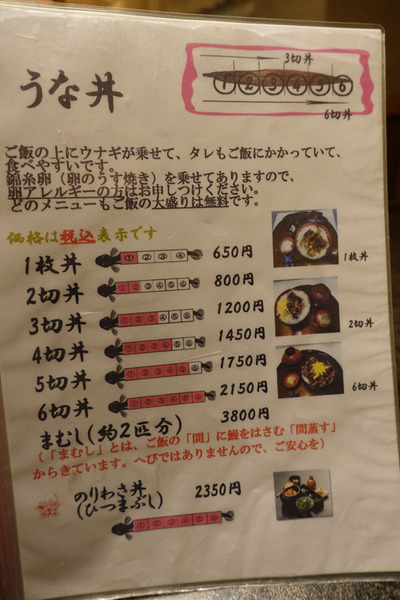 うな丼
3切丼
①②③④⑤⑥
6切丼
ご飯の上にウナギが乗せて、タレもご飯にかかっていて、
食べやすいです。
錦糸卵（卵のうす焼き）を乗せてありますので、
卵アレルギーの方はお申しつけください。
どのメニューもご飯の大盛りは無料です。
価格は税込表示です
1枚丼 ①②③④ 650円
2切丼 ①②③④⑤⑥ 800円
3切丼 ①②③④⑤⑥ 1200円
4切丼 ①②③④⑤⑥ 1450円
5切丼 ①②③④⑤⑥ 1750円
6切丼 ①②③④⑤⑥ 2150円
まむし(約2匹分) 3800円
(「まむし」とは、ご飯の「間」に鰻をはさむ「間蒸す」
からきています。へびではありませんので、ご安心を)
のりわさ丼 2350円
(ひつまぶし)
①②③④⑤⑥
1枚丼
2切丼
6切丼